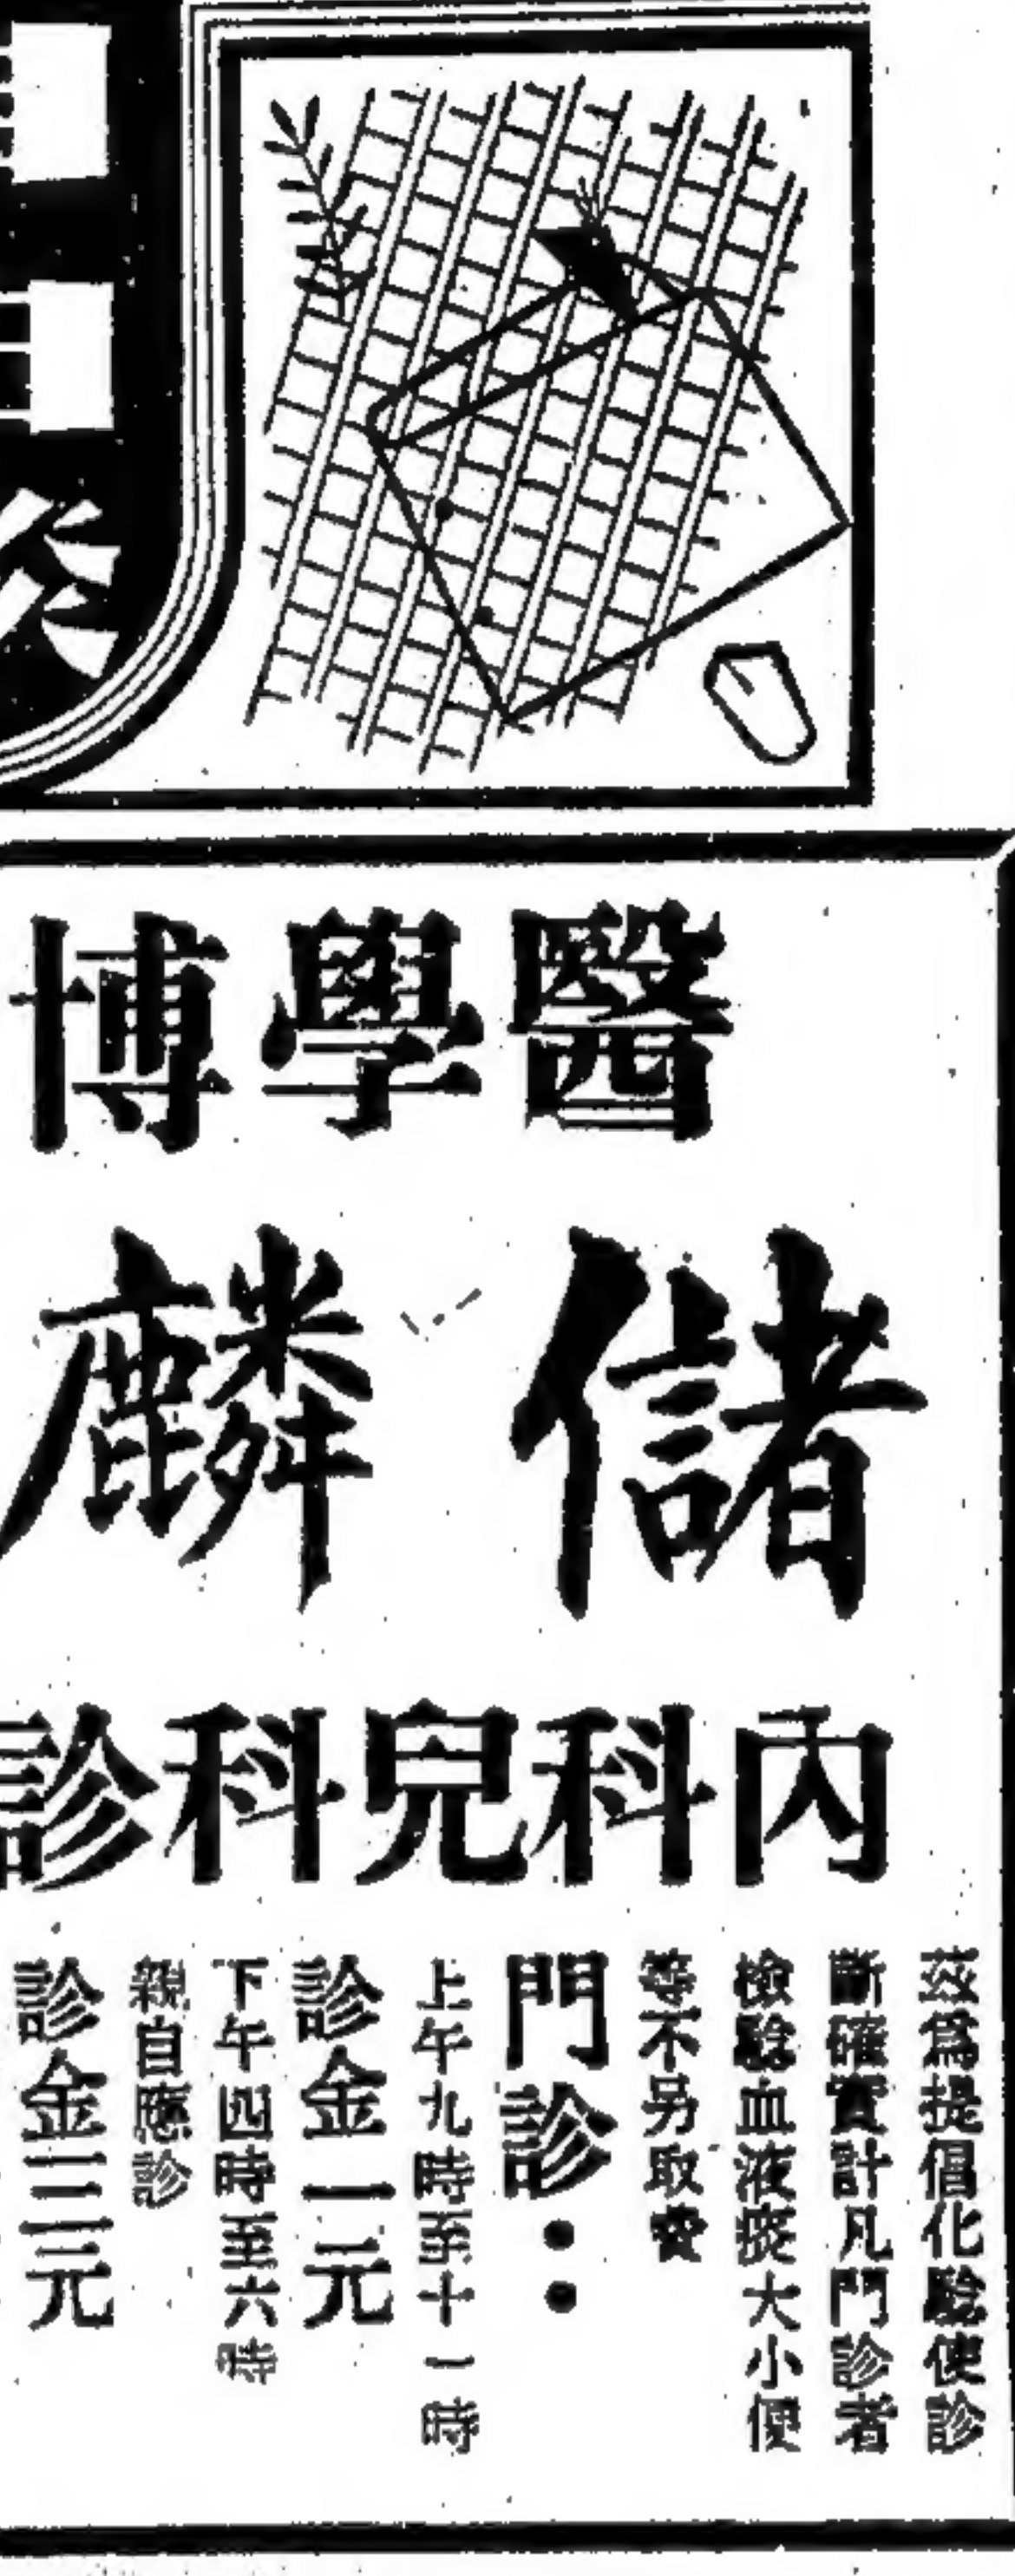 醫學博
儲麟
內科兒科診
茲爲提倡化驗使診
斷確實計凡門診者
檢驗血液痰大小便
等不另取費
門診：
上午九時至十一時
診金一元
下午四時至六時
親自應診
診金三元